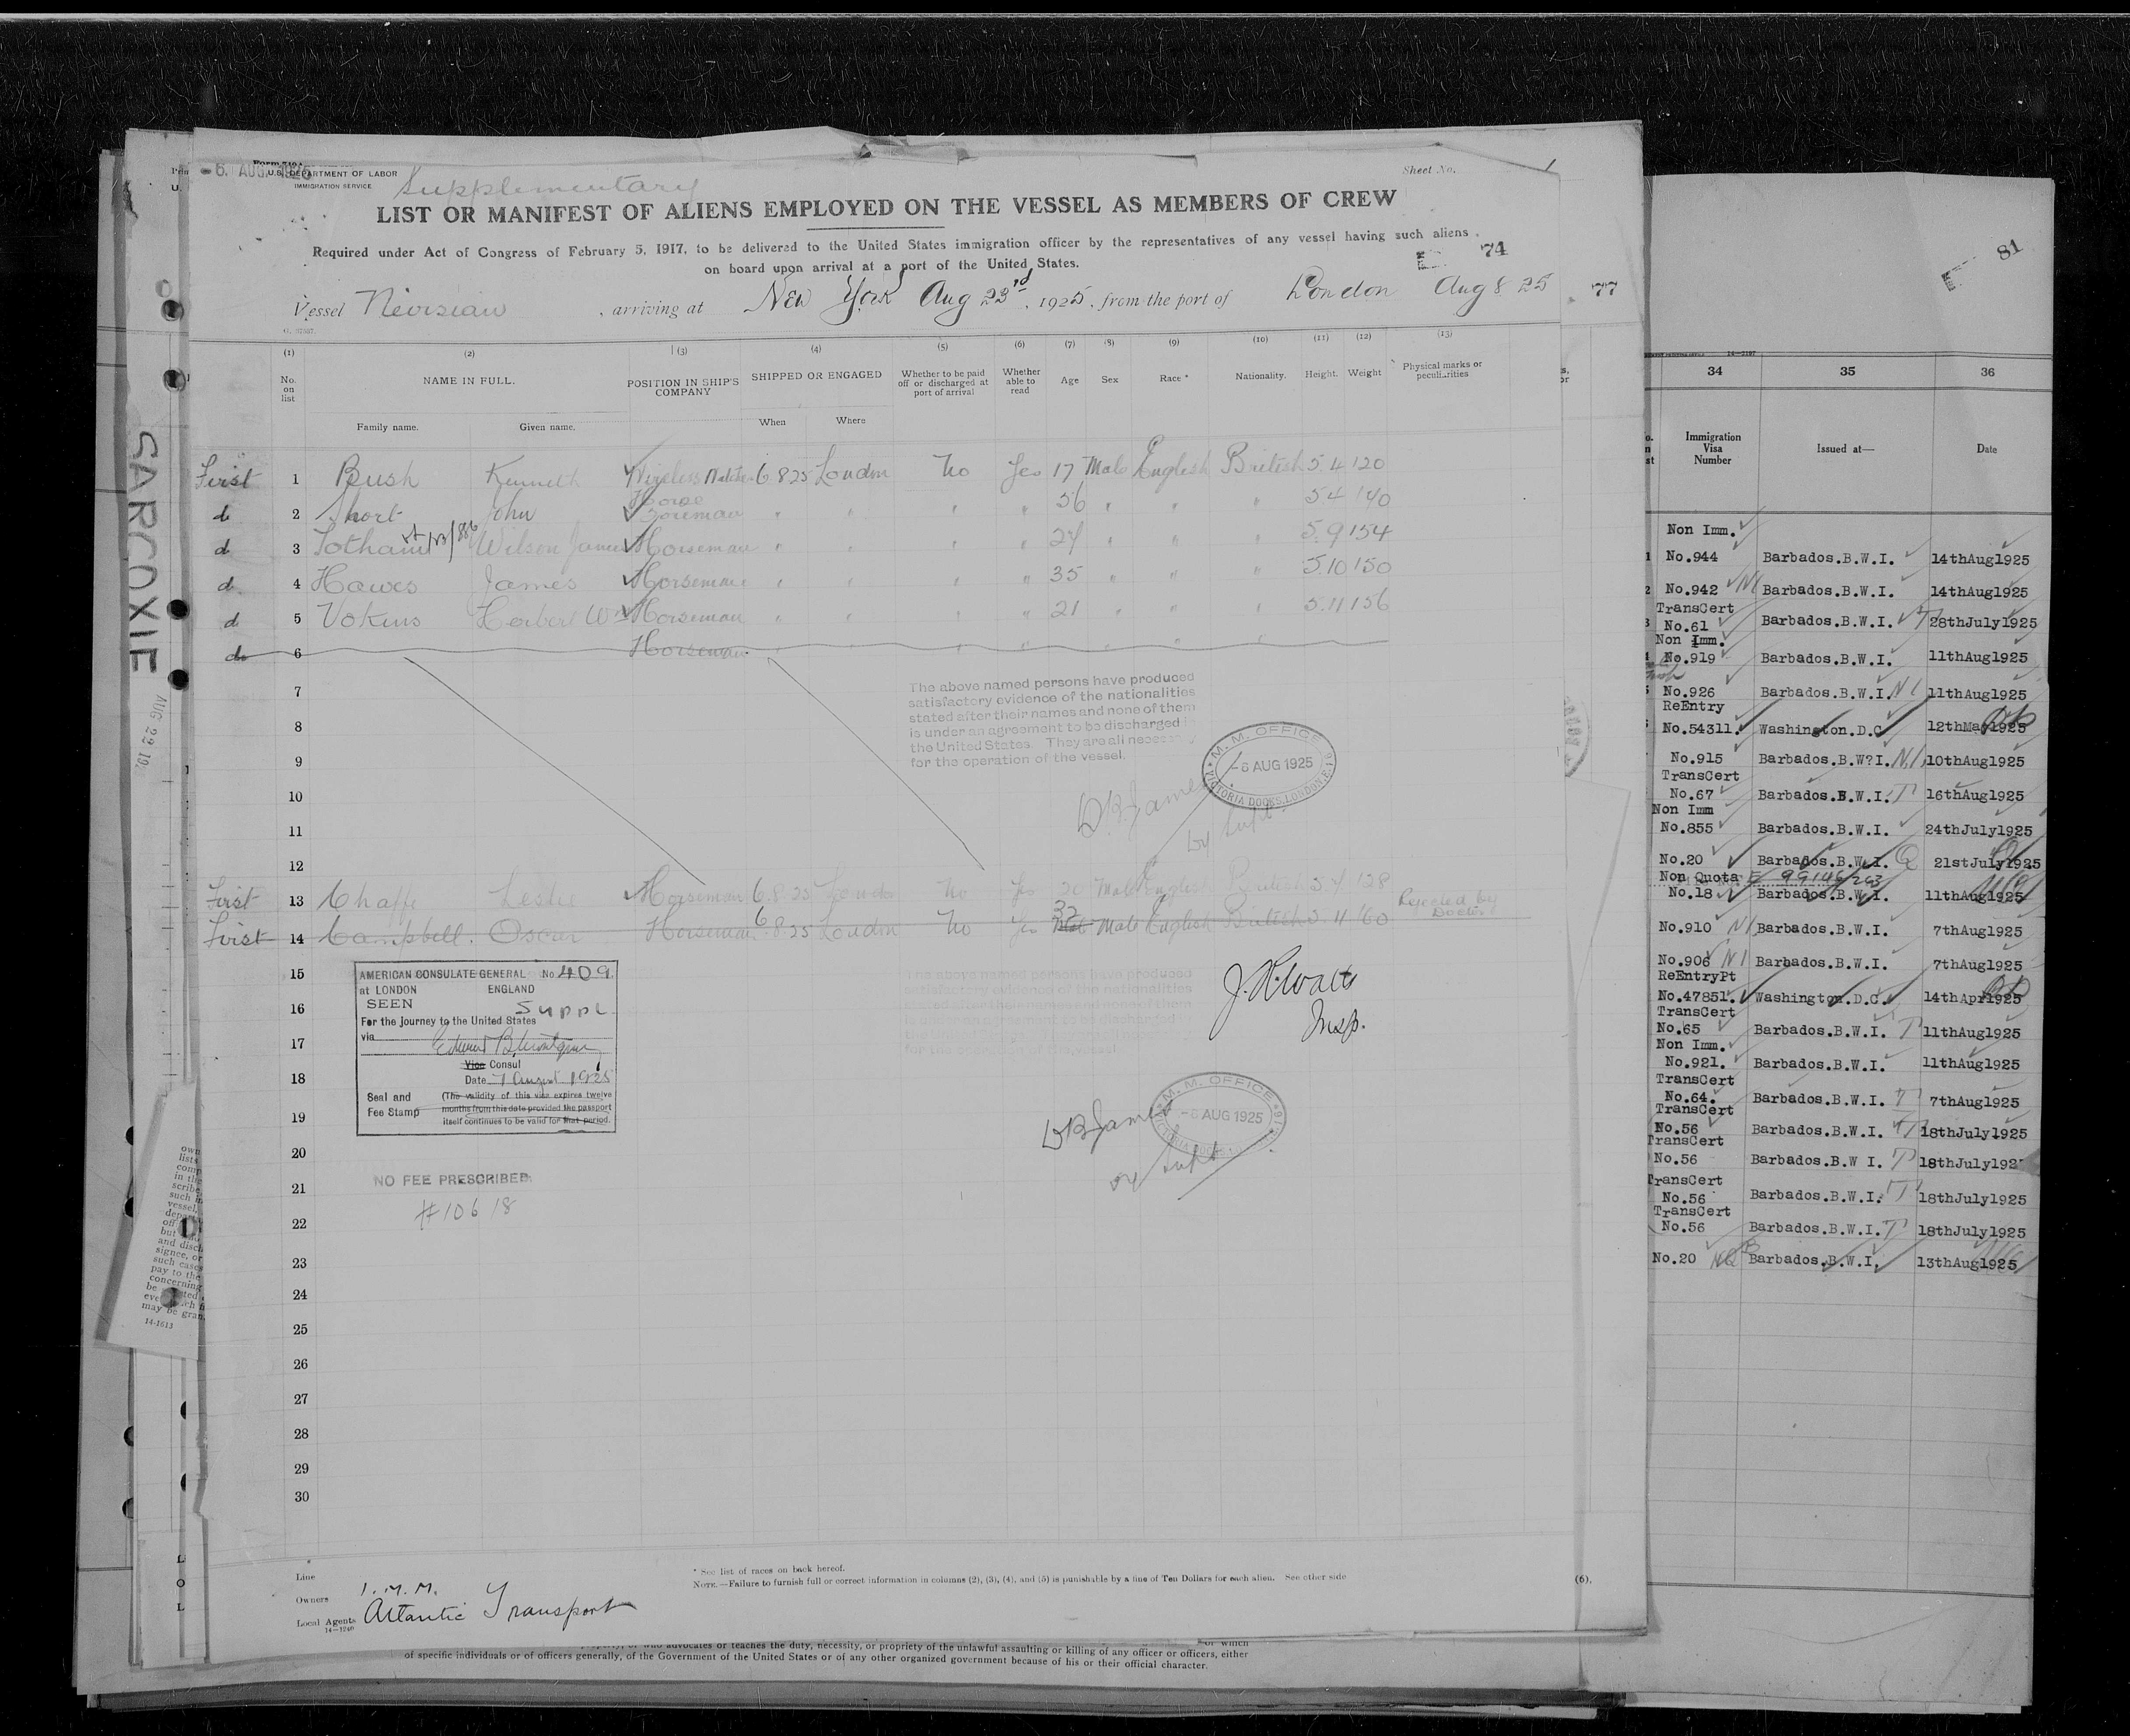 - 6. AUG. 1925
U.S. DEPARTMENT OF LABOR
IMMIGRATION SERVICE
Supplementary
Sheet No. 1
LIST OR MANIFEST OF ALIENS EMPLOYED ON THE VESSEL AS MEMBERS OF CREW
Required under Act of Congress of February 5, 1917, to be delivered to the United States immigration officer by the representatives of any vessel having such aliens
on board upon arrival at a port of the United States.
74
Vessel Nevisian, arriving at New York Aug 23rd, 1925, from the port of London Aug 8 25
77
(1) (2) (3) (4) (5) (6) (7) (8) (9) (10) (11) (12) (13)
No. on list NAME IN FULL. POSITION IN SHIP'S COMPANY SHIPPED OR ENGAGED Whether to be paid off or discharged at port of arrival Whether able to read Age Sex Race * Nationality. Height. Weight Physical marks or peculiarities
Family name. Given name. When Where
First 1 Bush Kenneth Wireless Watcher 6 8 25 London No Yes 17 Male English British 5.4 120
do 2 Short John Horse Foreman " " " " 56 " " " 5 4 140
d 3 Totham Wilson James Horseman " " " " 24 " " " 5.9 154
d 4 Hawes James Horseman " " " " 35 " " " 5.10 150
d 5 Vokins Herbert Wm Horseman " " " " 21 " " " 5.11 156
do 6 Horseman
7
The above named persons have produced
satisfactory evidence of the nationalities
stated after their names and none of them
is under an agreement to be discharged in
the United States. They are all necessary
for the operation of the vessel.
8
9
M. M. OFFICE
- 6 AUG 1925
VICTORIA DOCKS, LONDON, E.16
D.B. James
Supt
10
11
12
First 13 Chaffe Leslie Horseman 6.8.25 London No Yes 20 Male English British 5.4 128
First 14 Campbell. Oscar Horseman 6.8.25 London No Yes 32 Male English British 5.11 160 Rejected by Doctor
15
16
17
18
19
20
21
22
23
24
25
26
27
28
29
30
AMERICAN CONSULATE GENERAL No 409
at LONDON ENGLAND
SEEN Suppl
For the Journey to the United States
via
Vice Consul
Date 7 August 1925
Seal and Fee Stamp
(The validity of this visa expires twelve
months from this date provided the passport
itself continues to be valid for that period.
NO FEE PRESCRIBED.
#10618
The above named persons have produced
satisfactory evidence of the nationalities
J. R. Watt
Insp.
M. M. OFFICE
- 6 AUG 1925
DB James
Supt
* See list of races on back hereof.
NOTE.—Failure to furnish full or correct information in columns (2), (3), (4), and (5) is punishable by a fine of Ten Dollars for each alien. See other side
(6).
Line
Owners I. M. M.
Local Agents Atlantic Transport
14-1240
advocates or teaches the duty, necessity, or propriety of the unlawful assaulting or killing of any officer or officers, either
of specific individuals or of officers generally, of the Government of the United States or of any other organized government because of his or their official character.
SARCOXIE
AUG 22 19
14-1613
81
34 35 36
Immigration Visa Number Issued at— Date
Non Imm.
No.944 Barbados.B.W.I. 14thAug1925
No.942 NI Barbados.B.W.I. 14thAug1925
TransCert
No.61 Barbados.B.W.I. T 28thJuly1925
Non Imm.
No.919 Barbados.B.W.I. 11thAug1925
No.926 Barbados.B.W.I. NI 11thAug1925
ReEntry
No.54311. Washington.D.C 12thMar1925
No.915 Barbados.B.W?I. NI 10thAug1925
TransCert
No.67 Barbados.B.W.I. T 16thAug1925
Non Imm
No.855 Barbados.B.W.I. 24thJuly1925
No.20 Barbados.B.W.I. Q 21stJuly1925
Non Quota 99146/263
No.18 Barbados.B.W.I. 11thAug1925
No.910 NI Barbados.B.W.I. 7thAug1925
No.906 NI Barbados.B.W.I. 7thAug1925
ReEntryPt
No.47851. Washington.D.C. 14thApr1925
TransCert
No.65 Barbados.B.W.I. T 11thAug1925
Non Imm.
No.921. Barbados.B.W.I. 11thAug1925
TransCert
No.64. Barbados.B.W.I. T 7thAug1925
TransCert
No.56 Barbados.B.W.I. T 18thJuly1925
TransCert
No.56 Barbados.B.W I. T 18thJuly192
TransCert
No.56 Barbados.B.W.I. T 18thJuly1925
TransCert
No.56 Barbados.B.W.I. T 18thJuly1925
No.20 NQ Barbados.B.W.I. 13thAug1925